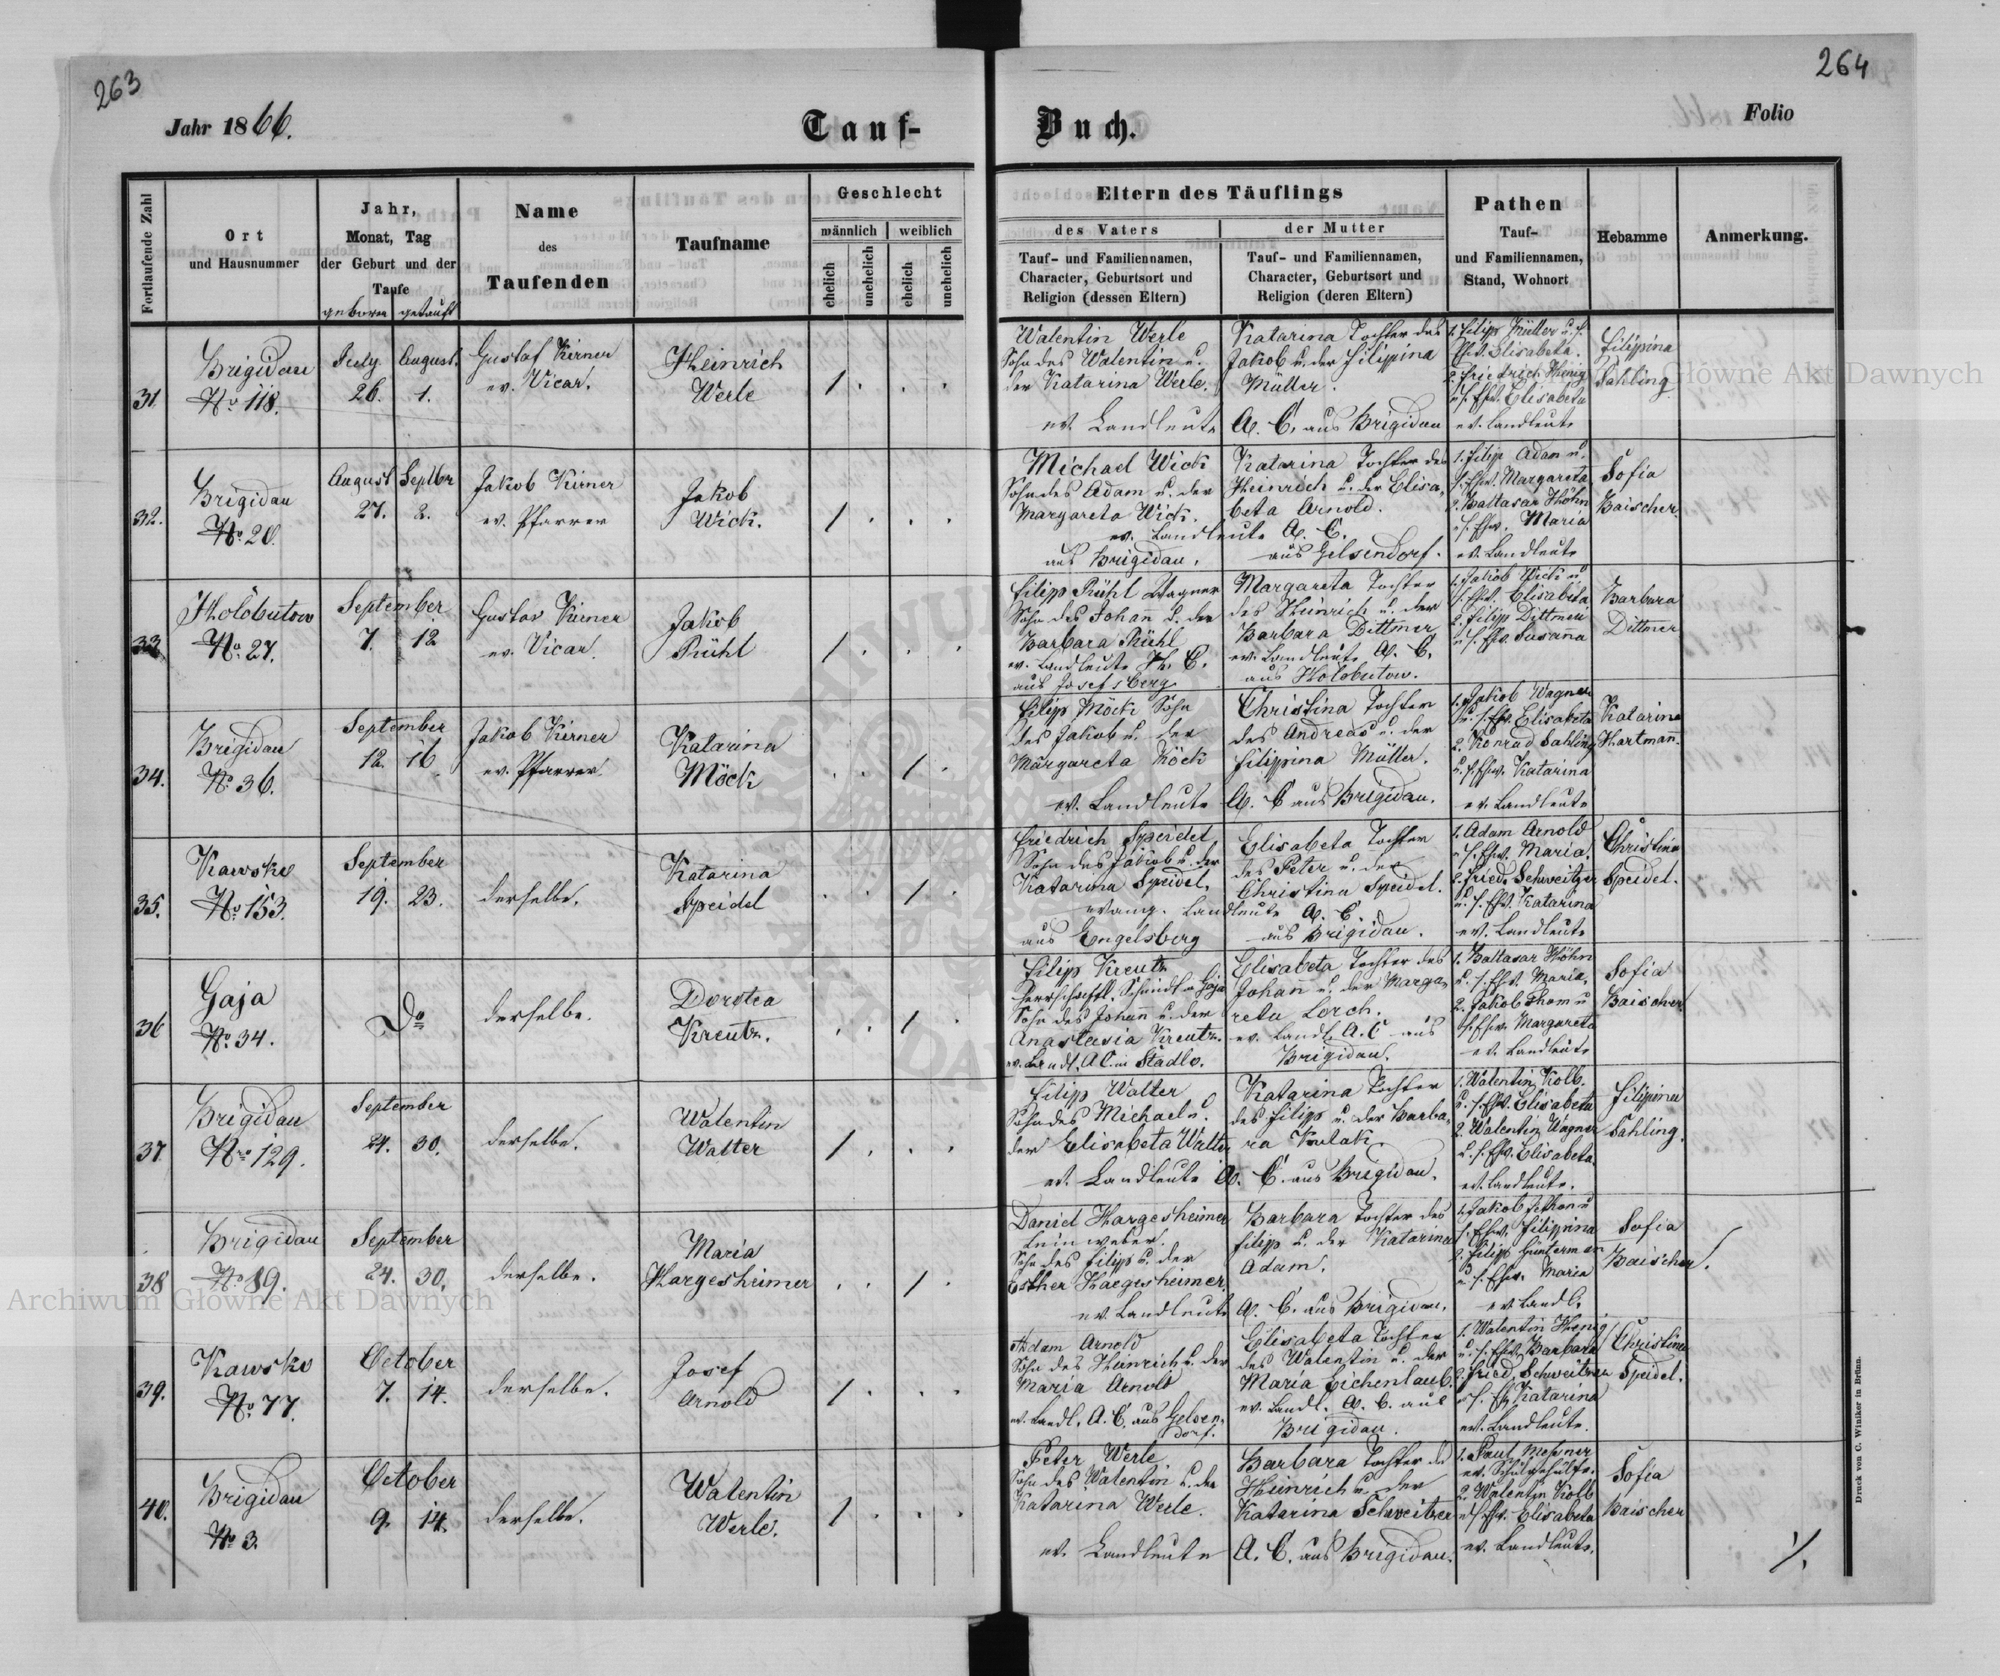 263
264
Jahr 1866.
Tauf-
Buch.
Folio
Fortlaufende Zahl
Ort
und Hausnummer
Jahr,
Monat, Tag
der Geburt und der
Taufe
geboren getauft
Name
des
Taufenden
Taufname
Geschlecht
männlich
weiblich
ehelich
unehelich
ehelich
unehelich
Eltern des Täuflings
des Vaters
der Mutter
Tauf- und Familiennamen,
Character, Geburtsort und
Religion (dessen Eltern)
Tauf- und Familiennamen,
Character, Geburtsort und
Religion (deren Eltern)
Pathen
Tauf-
und Familiennamen,
Stand, Wohnort
Hebamme
Anmerkung.
31.
Brigidau
No 118.
July August.
26. 1.
Gustaf Kirner
ev. Vicar.
Heinrich
Werle
1 . . .
Walentin Werle
Sohn des Walentin u.
der Katarina Werle.
ev. Landleute
Katarina Tochter des
Jakob u. der Filippina
Müller.
A. C. aus Brigidau
1. Filipp Müller u. s.
Ehw. Elisabeta.
2. Friedrich Henig
u s. Ehw. Elisabeta
ev. Landleute
Filippina
Sahling
32.
Brigidau
No. 20.
August Septbr
27. 2.
Jakob Kirner
ev. Pfarrer
Jakob
Wick.
1 . . .
Michael Wick
Sohn des Adam u. der
Margareta Wick.
ev. Landleute A. C.
aus Brigidau.
Katarina Tochter des
Heinrich u. der Elisa-
beta Arnold.
aus Gelsendorf.
1. Filip Adam u.
s. Ehw. Margareta
2. Baltasar Höhn
u s. Ehw. Maria
ev. Landleute
Sofia
Baischer.
33.
Holobutow
No. 27.
September
7. 12
Gustav Kirner
ev. Vicar.
Jakob
Rühl
1 . . .
Filipp Rühl Wagner
Sohn des Johann u. der
Barbara Rühl
ev. Landleute H. C.
aus Josefsberg
Margareta Tochter
des Heinrich u. der
Barbara Dittmer
ev. Landleute A. C.
aus Holobutow.
1. Jakob Wick u
s. Ehw. Elisabeta
2. Filip Dittmer
u s. Ehw. Susanna
Barbara
Dittmer
34.
Brigidau
No. 36.
September
12. 16
Jakob Kirner
ev. Pfarrer
Katarina
Möck
. . 1 .
Filip Möck Sohn
des Jakob u. der
Margareta Möck
ev. Landleute
Christina Tochter
des Andreas u. der
Filippina Müller.
A. C aus Brigidau.
1. Jakob Wagner
u. s. Ehw. Elisabeta
2. Konrad Sahling
u. s. Ehw. Katarina
ev. Landleute
Katarina
Hartmann.
35.
Kawsko
No. 153.
September
19. 23.
derselbe.
Katarina
Speidel
. . 1 .
Friedrich Speidel
Sohn des Jakob u. der
Katarina Speidel.
evang. Landleute A. C.
aus Engelsberg
Elisabeta Tochter
des Peter u. der
Christina Speidel.
aus Brigidau.
1. Adam Arnold
u. s. Ehw. Maria.
2. Fried. Schweitzer
u. s. Ehw. Katarina
ev. Landleute
Christina
Speidel.
36
Gaja
No. 34.
Do
derselbe.
Dorotea
Kreutz.
. . 1 .
Filip Kreutz
Sohn des Johan u. der
Anastasia Kreutz.
ev. Landl. A C. in Stadlo.
Elisabeta Tochter des
Johann u. der Marga-
reta Lorch.
ev. Landl. A. C aus
Brigidau.
1. Baltasar Höhn
u. s. Ehw. Maria.
2. Jakob Thom u
s. Ehw. Margareta
ev. Landleute
Sofia
Baischer
37
Brigidau
Nro 129.
September
24. 30.
derselbe.
Walentin
Walter
1 . . .
Filip Walter
Sohn des Michael u.
der Elisabeta Walter
ev. Landleute
Katarina Tochter
des Filipp u. der Barba-
ra Kulak.
A. C. aus Brigidau.
1. Walentin Kolb.
u. s. Ehw. Elisabeta
2. Walentin Wagner
u. s. Ehw. Elisabeta.
ev. Landleute.
Filipina
Sahling.
38
Brigidau
No 89.
September
24. 30.
derselbe.
Maria
Hargesheimer
. . 1 .
Daniel Hargesheimer
Leinweber.
Sohn des Filip u. der
Esther Haegesheimer.
ev. Landleute
Barbara Tochter des
Filipp u. der Katarina
Adam.
A. C. aus Brigidau.
s. Ehw. Filippina
2. Filip Günterman
u. s. Ehw. Maria
ev Landl.
Sofia
Baischer.
39.
Kawsko
No. 77.
October
7. 14.
derselbe.
Josef
Arnold
1 . . .
Adam Arnold
Sohn des Heinrich u. der
Maria Arnold
ev. Landl. A. C. aus Gelsen-
dorf.
Elisabeta Tochter
des Walentin u. der
Maria Eichenlaub.
ev. Landl. A. C. aus
Brigidau.
1. Walentin Henig
u. s. Ehw. Barbara
2. Fried. Schweitzer
u s. Ehw Katarina
ev. Landleute.
Christina
Speidel.
40.
Brigidau
No 3.
October
9. 14.
derselbe.
Walentin
Werle.
1 . . .
Peter Werle.
Sohn des Walentin u. der
Katarina Werle.
ev. Landleute
Barbara Tochter des
Heinrich u. der
Katarina Schweitzer
A. C. aus Brigidau.
1. Paul Messner
ev. Schulgehülfe.
2. Walentin Kolb
u s. Ehw. Elisabeta
ev. Landleute.
Sofia
Baischer
Druck von C. Winiker in Brünn.
Archiwum Główne Akt Dawnych
Główne Akt Dawnych